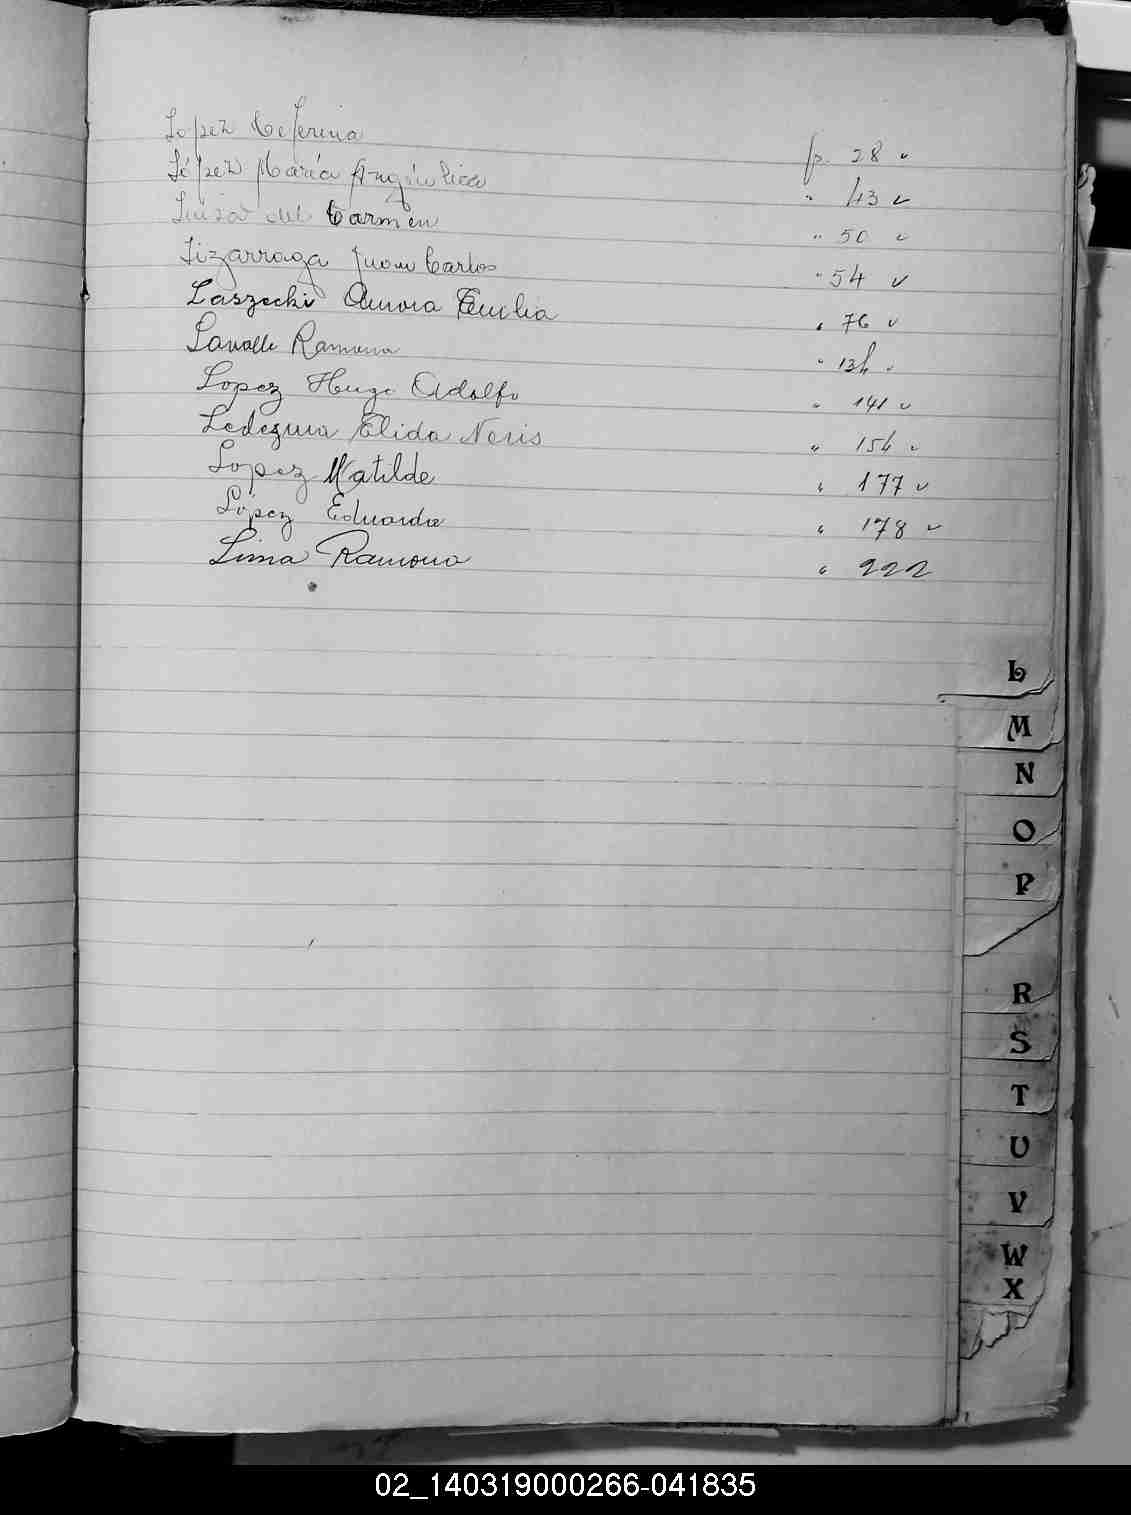 Lopez Ceferina fo. 28 ✓
López María Angéulica " 43 ✓
Luisa del Carmen " 50 ✓
Lizarraga Juan Carlos " 54 ✓
Laszecki Aurora Emilia " 76 ✓
Lavalle Ramona " 134 ✓
Lopez Hugo Adolfo " 141 ✓
Ledezma Elida Neris " 154 ✓
Lopez Matilde " 177 ✓
López Eduardo " 178 ✓
Lima Ramona " 222
L
M
N
O
P
R
S
T
U
V
W
X
02_140319000266-041835